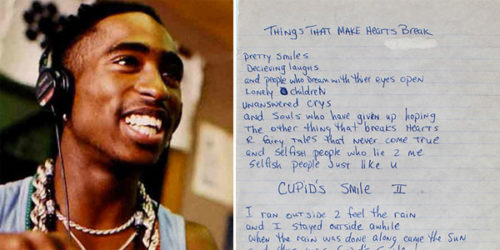 THINGS THAT MAKE HEARTS BREAK
pretty smiles
Decieving laughs
and people who dream with thier eyes open
Lonely children
unanswered crys
and souls who have given up hoping
The other thing that breaks Hearts
R fairy Tales that never come true
and selfish people who lie 2 me
selfish people just like u
CUPID'S SMILE II
I ran outside 2 feel the rain
and I stayed outside awhile
when the rain was done along came the sun